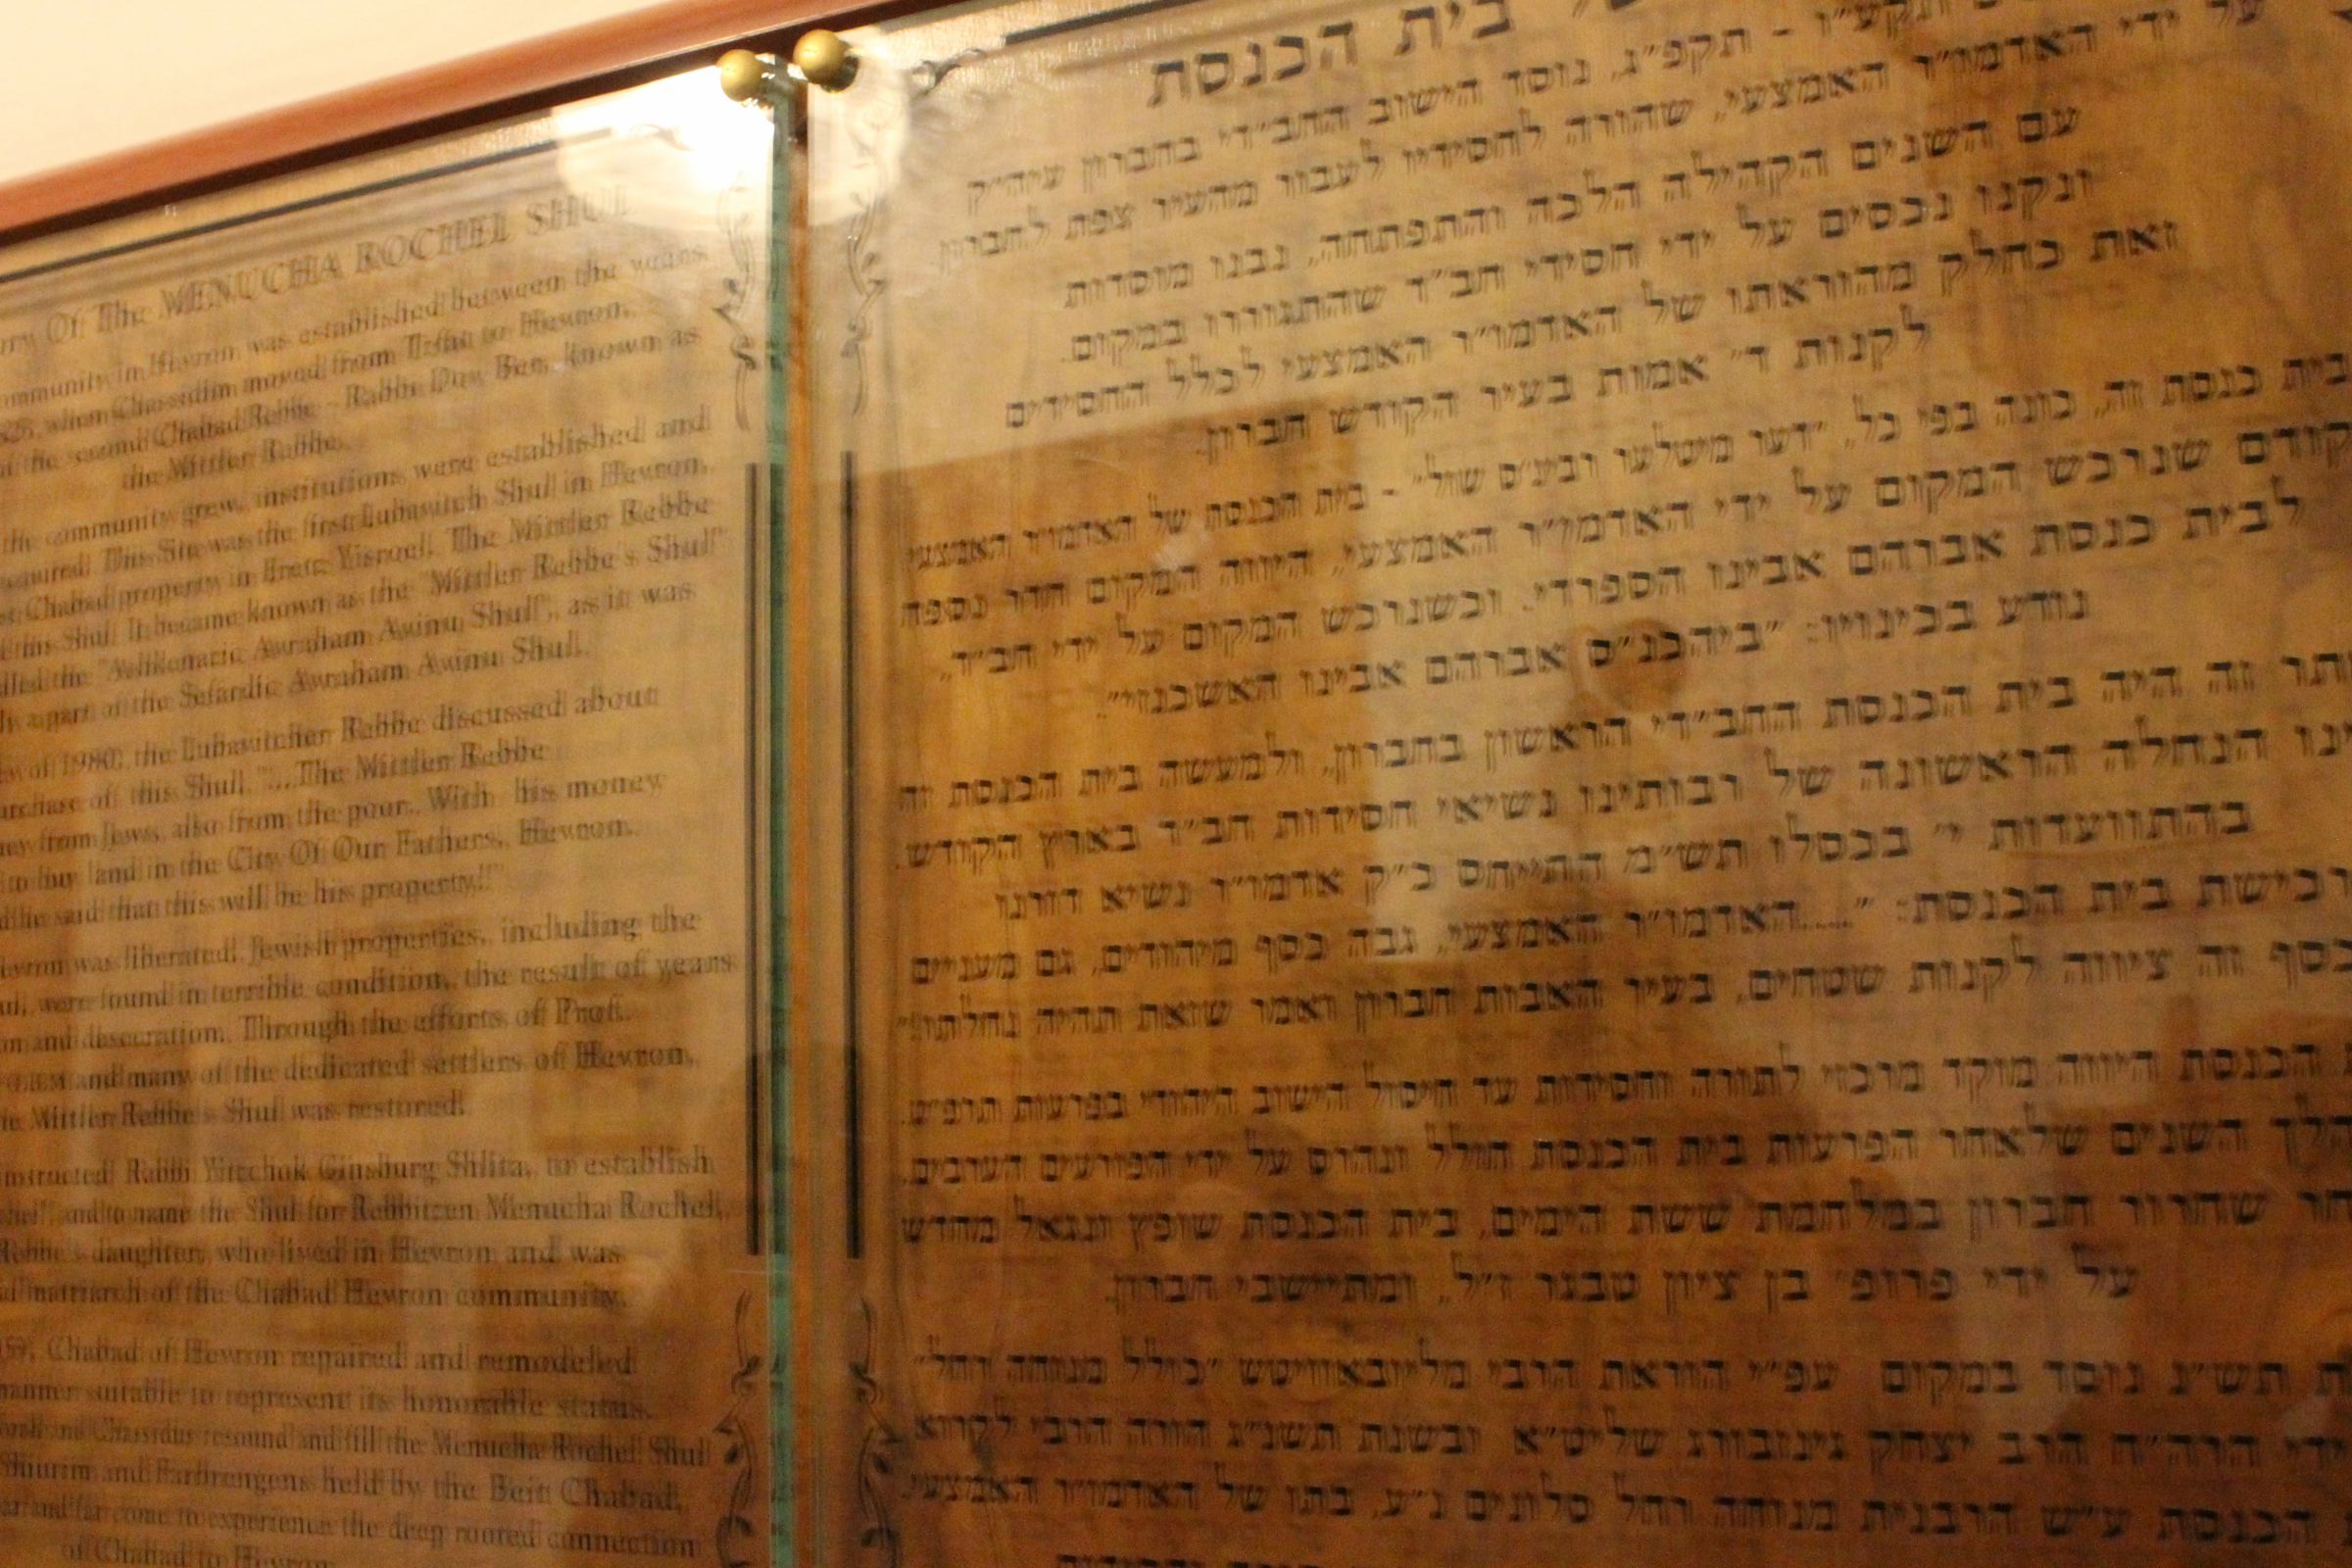 Of The MENUCHA ROCHEL SHUL
in Hevron was established between the years
when Chassidim moved from Tzfat to Hevron,
the second Chabad Rebbe - Rabbi Dov Ber, known as
the Mittler Rebbe.
the community grew, institutions were established and
This Site was the first Lubavitch Shul in Hevron,
Chabad property in Eretz Yisroel. The Mittler Rebbe
this Shul. It became known as the "Mittler Rebbe's Shul"
the "Ashkenazic Avraham Avinu Shul", as it was
a part of the Sefardic Avraham Avinu Shul.
of 1980, the Lubavitcher Rebbe discussed about
of this Shul, "...The Mittler Rebbe
from Jews, also from the poor. With his money
to buy land in the City Of Our Fathers, Hevron.
he said that this will be his property!"
was liberated, Jewish properties, including the
were found in terrible condition, the result of years
and desecration. Through the efforts of Prof.
and many of the dedicated settlers of Hevron,
Mittler Rebbe's Shul was restored.
Rabbi Yitzchok Ginsburg Shlita, to establish
and to name the Shul for Rebbitzen Menucha Rochel,
daughter, who lived in Hevron and was
matriarch of the Chabad Hevron community.
Chabad of Hevron repaired and remodeled
suitable to represent its honorable status.
and Chassidus resound and fill the Menucha Rochel Shul
Shiurim and Farbrengens held by the Beit Chabad,
and far come to experience the deep rooted connection
of Chabad to Hevron
בית הכנסת
תקפ"ג, נוסד הישוב החב"די בחברון עיה"ק
על ידי האדמו"ר האמצעי, שהורה לחסידיו לעבור מהעיר צפת לחברון
עם השנים הקהילה הלכה והתפתחה, נבנו מוסדות
ונקנו נכסים על ידי חסידי חב"ד שהתגוררו במקום.
זאת כחלק מהוראתו של האדמו"ר האמצעי לכלל החסידים
לקנות ד' אמות בעיר הקודש חברון.
בית כנסת זה, כונה בפי כל, - בית הכנסת של האדמו"ר האמצעי
קודם שנרכש המקום על ידי האדמו"ר האמצעי, היווה המקום חדר נספח
לבית כנסת אברהם אבינו הספרדי. וכשנרכש המקום על ידי חב"ד,
נודע בכינויו: "ביהכנ"ס אברהם אבינו האשכנזי".
זה היה בית הכנסת החב"די הראשון בחברון, ולמעשה בית הכנסת זה
הנחלה הראשונה של רבותינו נשיאי חסידות חב"ד בארץ הקודש.
בהתוועדות י' בכסלו תש"מ התייחס כ"ק אדמו"ר נשיא דורנו
רכישת בית הכנסת: "....האדמו"ר האמצעי, גבה כסף מיהודים, גם מעניים
כסף זה ציווה לקנות שטחים, בעיר האבות חברון ואמר שזאת תהיה נחלתו!"
הכנסת היווה מוקד מרכזי לתורה וחסידות עד חיסול הישוב היהודי בפרעות תרפ"ט.
השנים שלאחר הפרעות בית הכנסת חולל ונהרס על ידי הפורעים הערבים.
שחרור חברון במלחמת ששת הימים, בית הכנסת שופץ ונגאל מחדש
על ידי פרופ' בן ציון טבגר ז"ל, ומתיישבי חברון.
תש"נ נוסד במקום עפ"י הוראת הרבי מליובאוויטש "כולל מנוחה רחל"
הרה"ח הרב יצחק גינזבורג שליט"א ובשנת תשנ"ג הורה הרבי לקרוא
הכנסת ע"ש הרבנית מנוחה רחל סלונים נ"ע, בתו של האדמו"ר האמצעי.